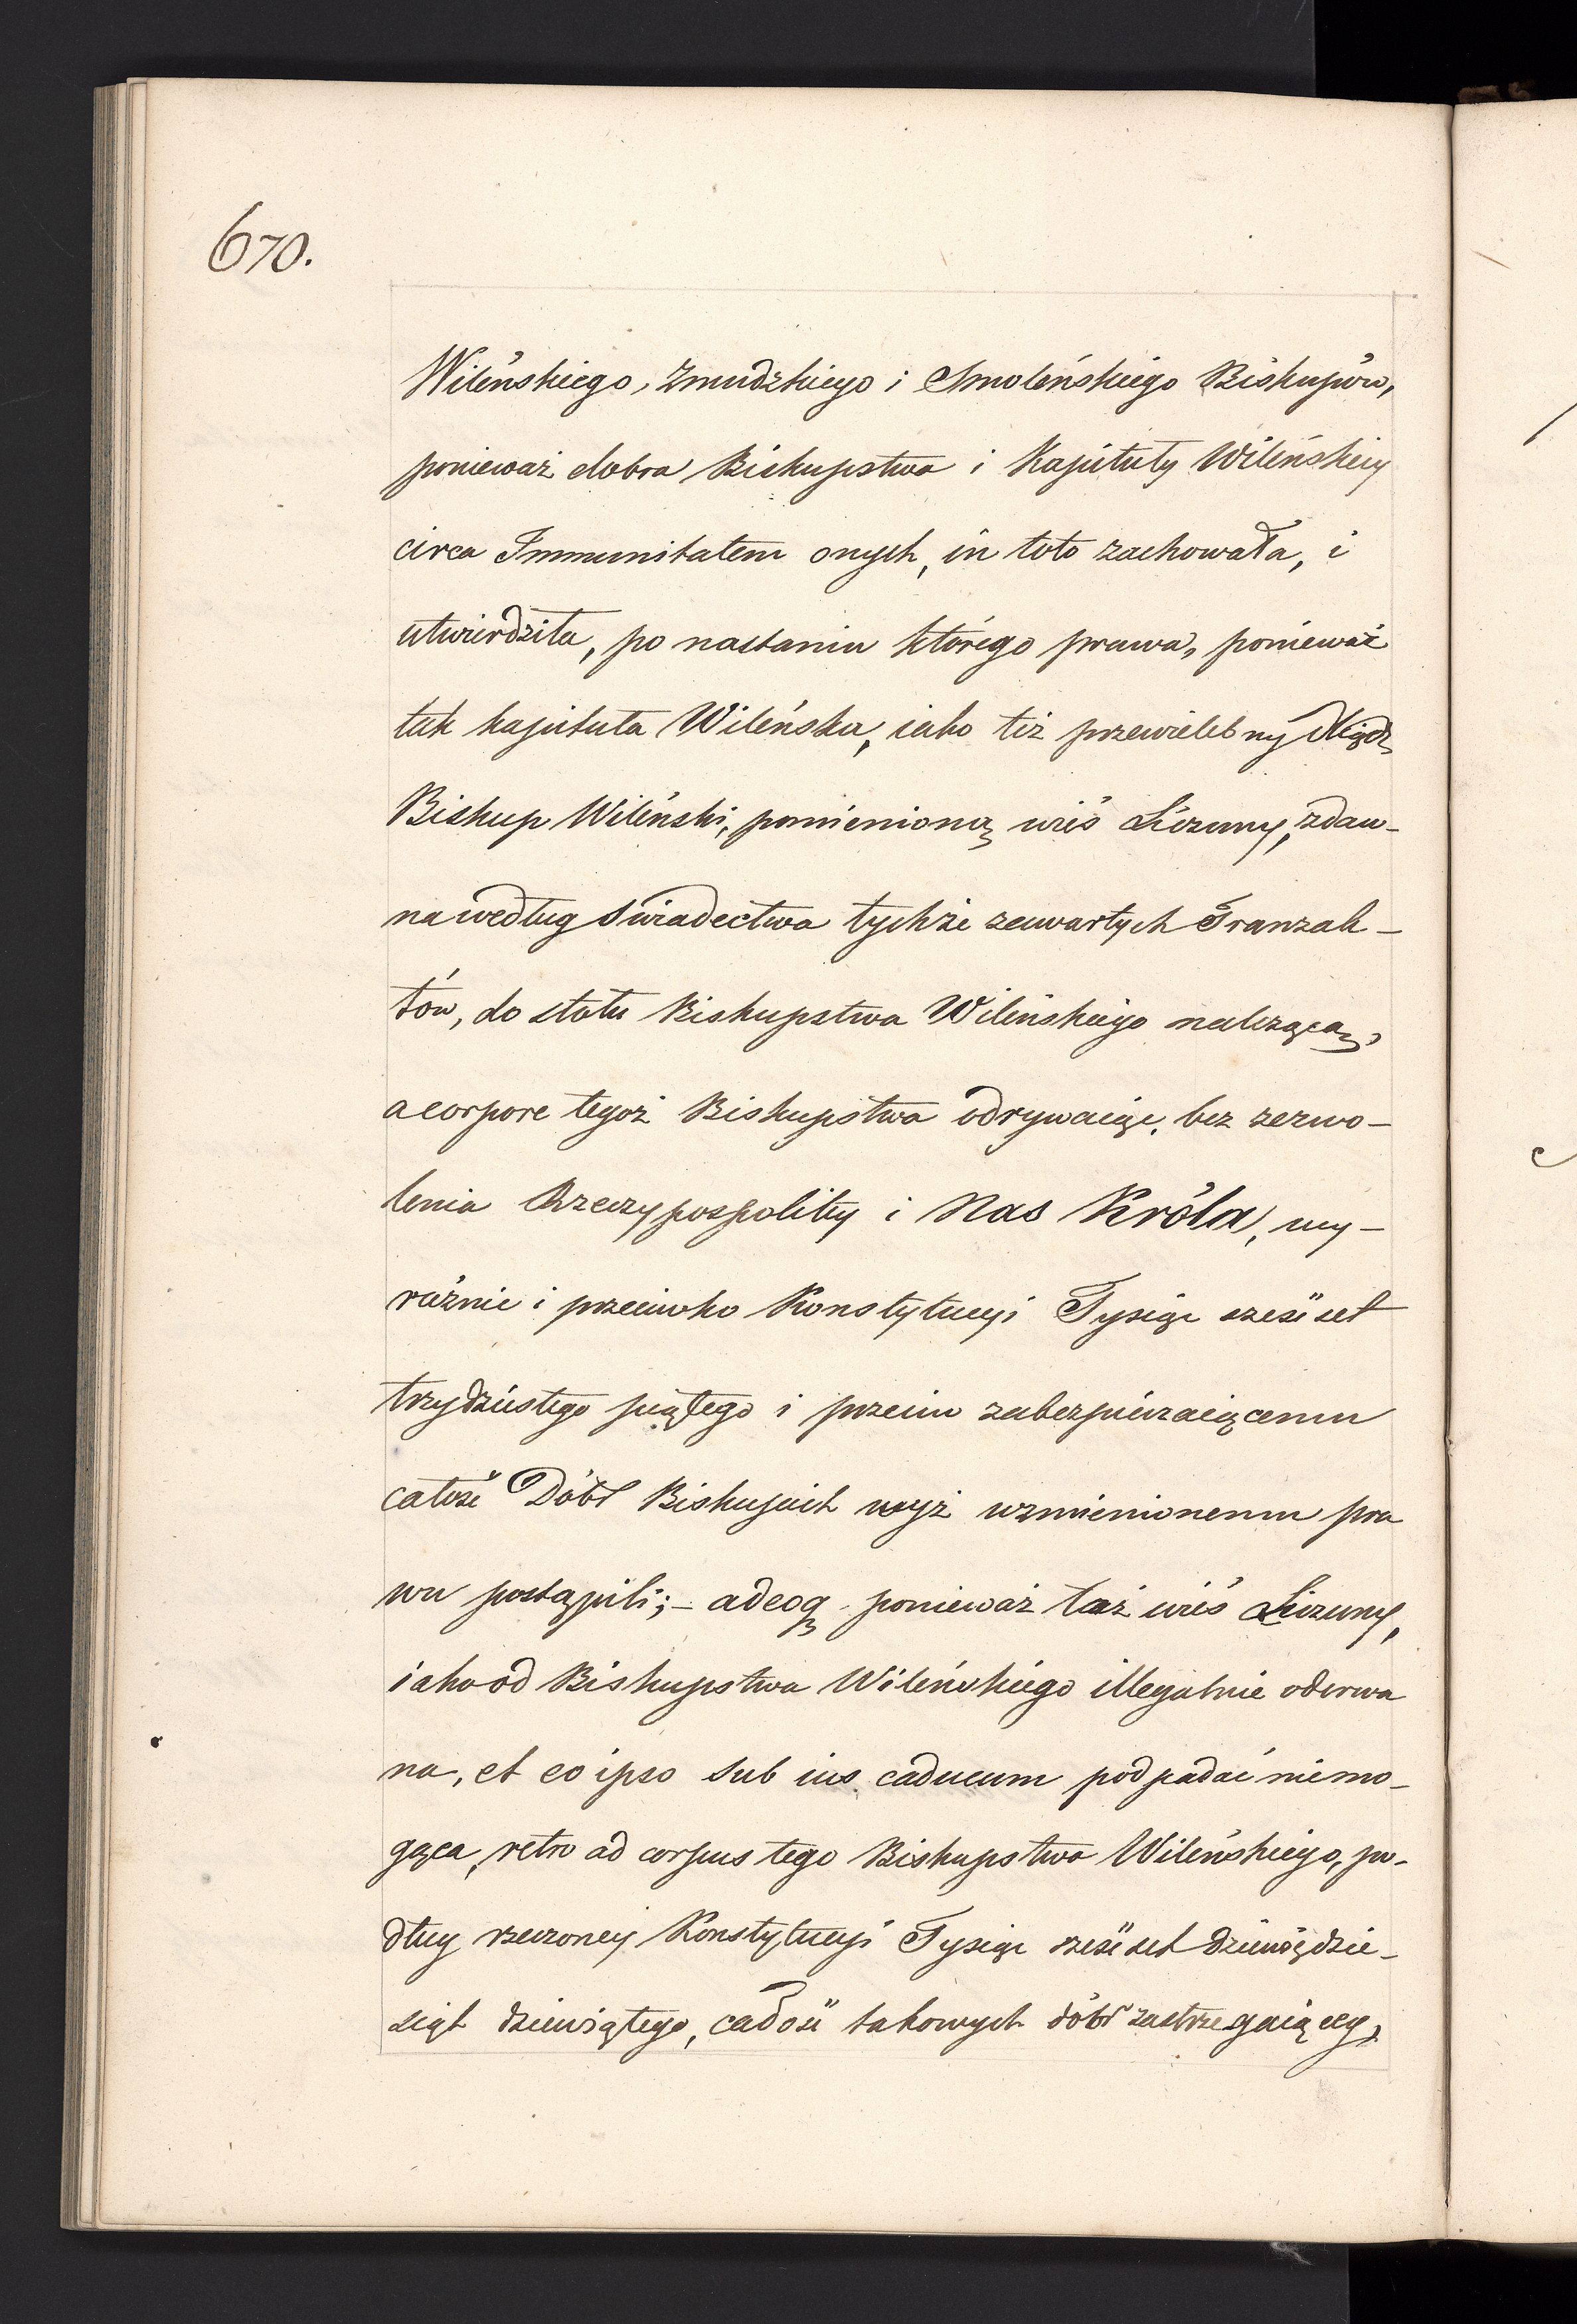 670.
Wileńskiego, Zmudzkiego i Smoleńskiego Biskupów,
ponieważ dobra Biskupstwa i Kapituły Wileńskiey
circa Immunitatem onych, in toto zachowała, i
utwierdziła, po nastaniu którego prawa, ponieważ
tak kapituła Wileńska, iako też przewielebny Xiądz
Biskup Wileński, pomienioną wieś Liczuny, zdaw-
na według świadectwa tychże zawartych Tranzak-
tów, do stołu Biskupstwa Wileńskiego należącą,
a corpore tegoż Biskupstwa odrywaiąc, bez zezwo-
lenia Rzeczypospolitey i Nas Króla, wy-
raźnie i przeciwko Konstytucyi Tysiąc sześćset
trzydziestego piątego i przeciw zabezpieczaiącemu
całość Dóbr Biskupich wyż wzmienionemu pra
wu postąpili; - adeoq ponieważ taż wieś Liczuny,
iako od Biskupstwa Wileńskiego illegalnie oderwa
na, et eo ipso sub ius caducum podpadać niemo-
gąca, retro ad corpus tego Biskupstwa Wileńskiego, po-
dług rzeczoney Konstytucyi Tysiąc sześćset dziewiędzie-
siąt dziewiątego, całość takowych dóbr zastrzegaiącey,